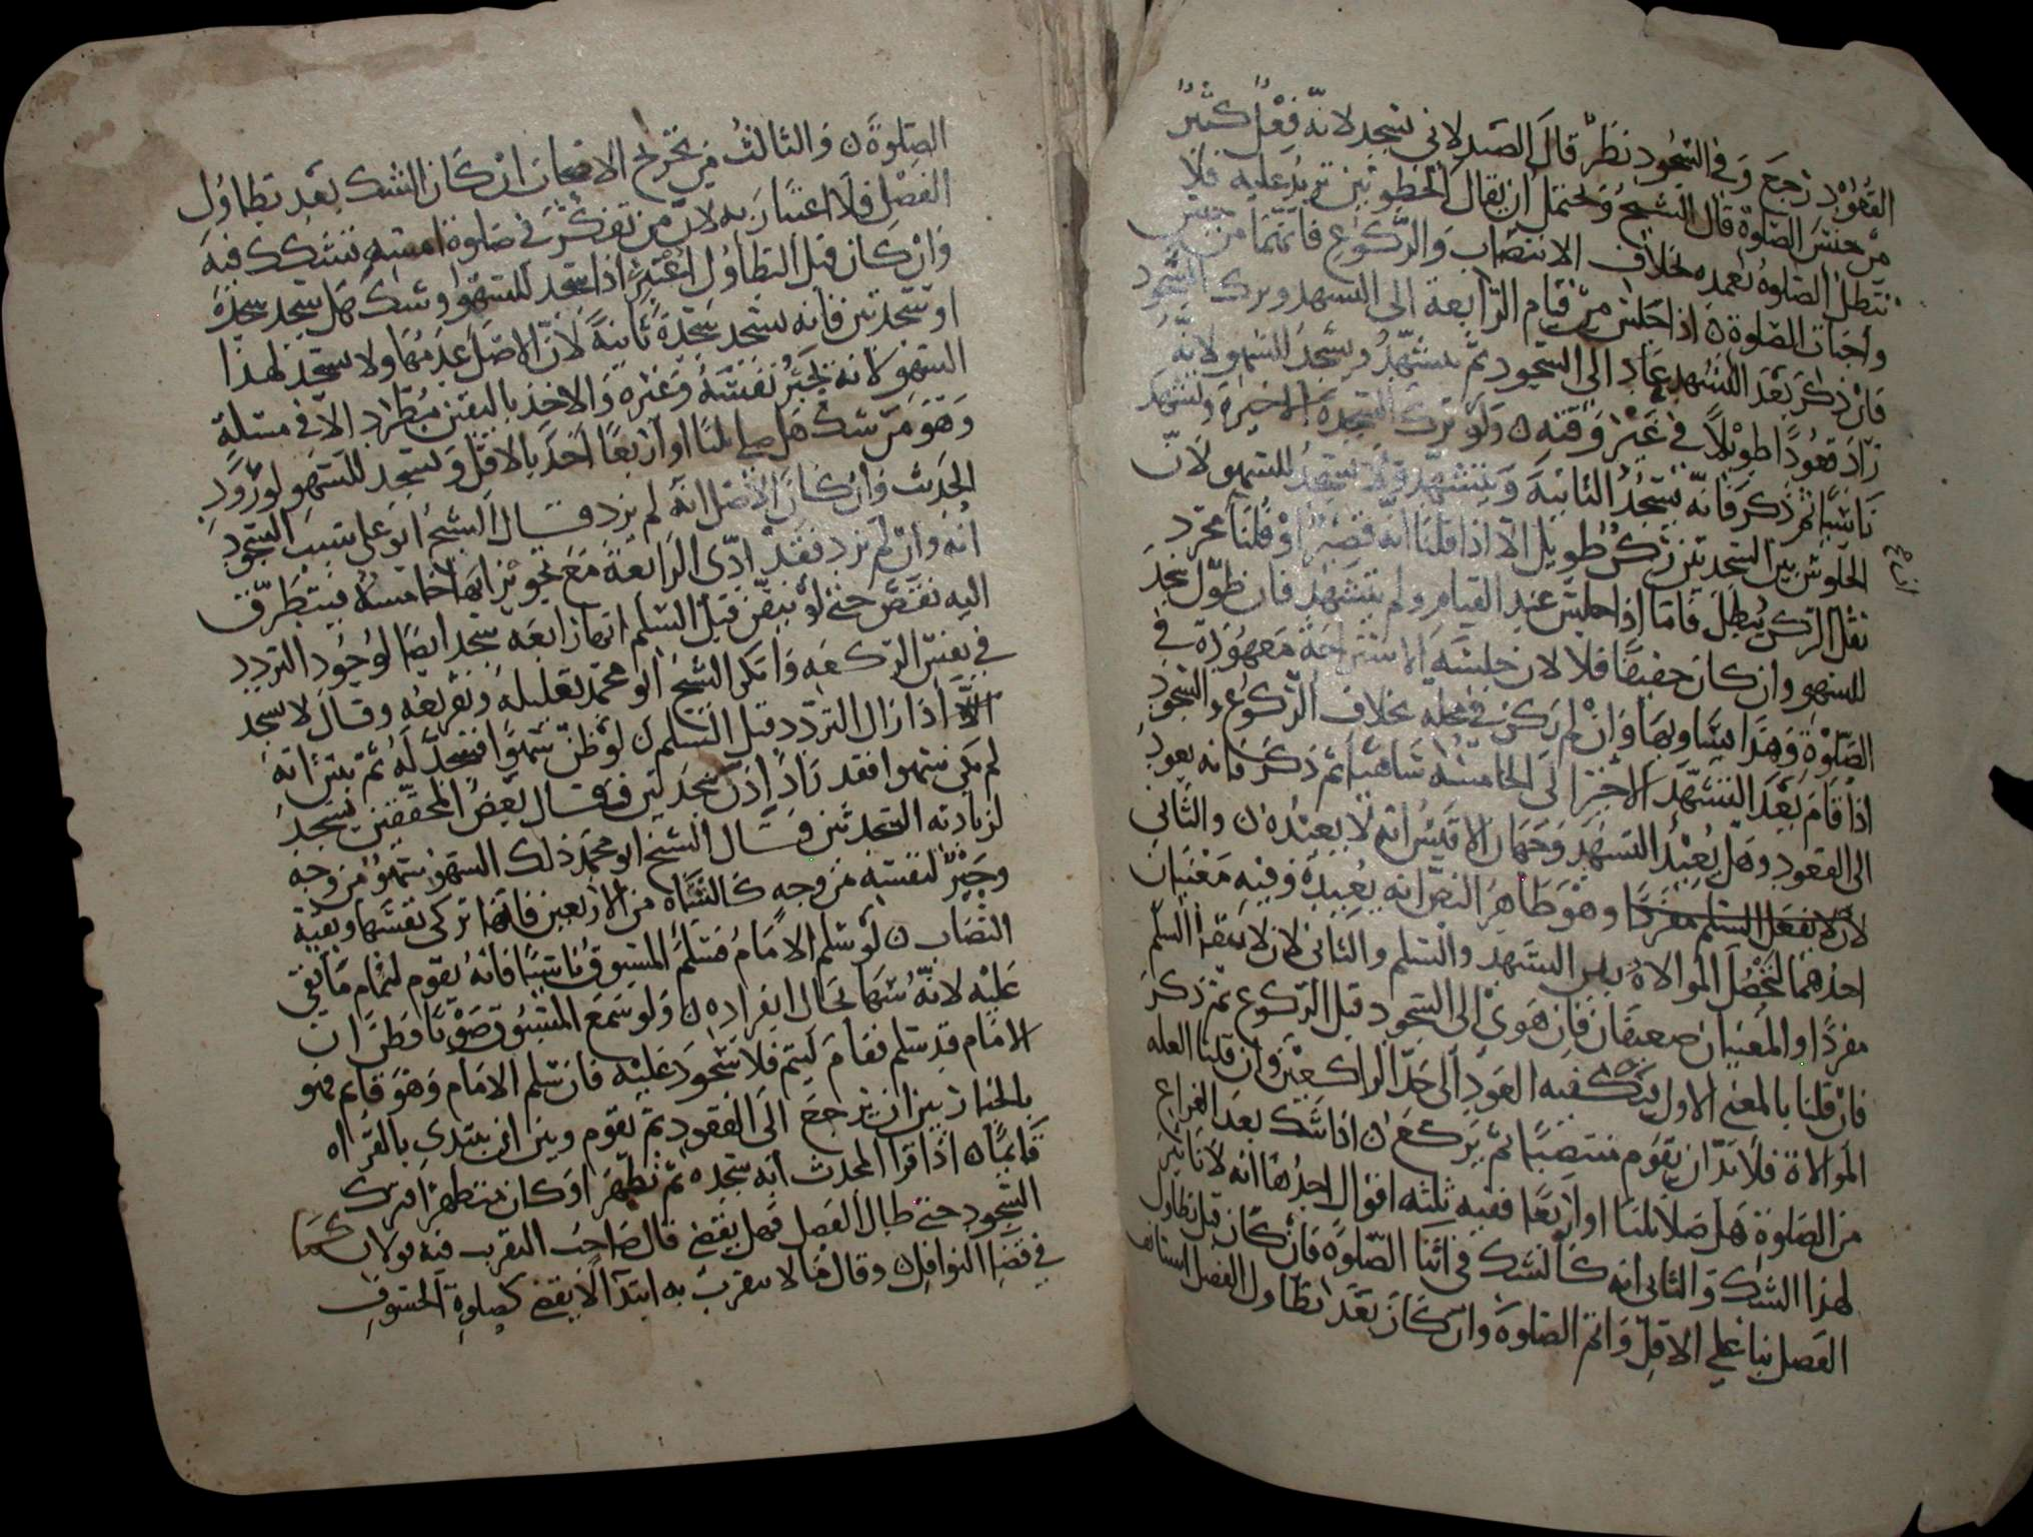 القعود رجع وفي السجود نظر قال الصيدلاني يسجد لانه فعل كثير
من جنس الصلوة قال الشيخ ويحتمل ان يقال الخطوتين تزيد عليه فلا
تبطل الصلوة بعمده بخلاف الانتصاب والركوع فانهما من جنس
واجبات الصلوة ن اذا جلس من قيام الرابعة الى التشهد وترك السجود
فان ذكر بعد التشهد عاد الى السجود ثم يتشهد ويسجد للسهو لانه
زاد قعودا طويلا في غير وقته ن ولو ترك السجدة الاخيرة وتشهد
ناسيا ثم ذكر فانه يسجد الثانية ويتشهد ولا يسجد للسهو لان
الجلوس بين السجدتين ركن طويل الا اذا قلنا انه قصير او قلنا مجرد
نقل الركن يبطل فاما اذا جلس عند القيام ولم يتشهد فان طول سجد
للسهو وان كان خفيفا فلا لان جلسة الاستراحة معهودة في
الصلوة وهذا يساويها وان لم يكن في محله بخلاف الركوع والسجود
اذا قام بعد التشهد الاخير الى الخامسة ساهيا ثم ذكر فانه يعود
الى القعود وهل يعيد التشهد وجهان الاقيس انه لا يعيده ن والثاني
وهو ظاهر النص انه يعيده وفيه معنيان
احدهما لتحصل الموالاة بين التشهد والسلم والثاني لان لا يبقى السلم
مفردا والمعنيان ضعيفان فان هوى الى السجود قبل الركوع ثم ذكر
فان قلنا بالمعنى الاول فيكفيه العود الى حد الراكعين وان قلنا العله
الموالاة فلا بد ان يقوم منتصبا ثم يركع ن اذا شك بعد الفراغ
من الصلوة هل صلا ثلثا او اربعا ففيه ثلثه اقوال احدها انه لا تاثير
لهذا الشك والثاني انه كالشك في اثنا الصلوة فان كان قبل تطاول
الفصل بنا على الاقل واتم الصلوة وان كان بعد تطاول الفصل استانف
الصلوة ن والثالث من تخريج الاصحاب ان كان الشك بعد تطاول
الفصل فلا اعتبار به لان من تفكر في صلوة امسه تشكك فيه
وان كان قبل التطاول اعتبر اذا سجد للسهو وشك هل سجد سجدة
او سجدتين فانه يسجد سجدة ثانية لان الاصل عدمها ولا يسجد لهذا
السهو لانه يجبر نفسه وغيره والاخذ باليقين مطرد الا في مسئلة
وهو من شك هل صلى ثلثا او اربعا اخذ بالاقل ويسجد للسهو لورود
الحديث وان كان الاصل انه لم يزد قال الشيخ ابو علي سبب السجود
انه وان لم يزد فقد ادى الرابعة مع تجويز انها خامسة فيتطرق
اليه نقص حتى لو تيقن قبل السلم انها رابعه سجد ايضا لوجود التردد
في نفس الركعه وانكر الشيخ ابو محمد تعليله وتفريعه وقال لا يسجد
اذا زال التردد قبل السلم ن لو ظن سهوا فسجد له ثم تبين انه
لم يكن سهوا فقد زاد اذن سجدتين فقال بعض المحققين يسجد
لزيادته السجدتين وقال الشيخ ابو محمد ذلك السهو سهو من وجه
وجبر لنفسه من وجه كالشاة من الاربعين فانها تزكى نفسها وبقية
النصاب ن لو سلم الامام فسلم المسبوق ناسيا فانه يقوم لتمام ما بقي
عليه لانه سها بحال انفراده ن ولو سمع المسبوق صوتا وظن ان
الامام قد سلم فقام ليتم فلا سجود عليه فان سلم الامام وهو قايم فهو
بالخيار بين ان يرجع الى القعود ثم يقوم وبين ان يبتدى بالقراة
قايما ن اذا قرا المحدث اية سجدة ثم تطهر او كان متطهرا فترك
السجود حتى طال الفصل فهل يقضى قال صاحب التقريب فيه قولان كما
في قضا النوافل ن وقال ما لا يتقرب به ابتدا لا يقضى كصلوة الخسوف